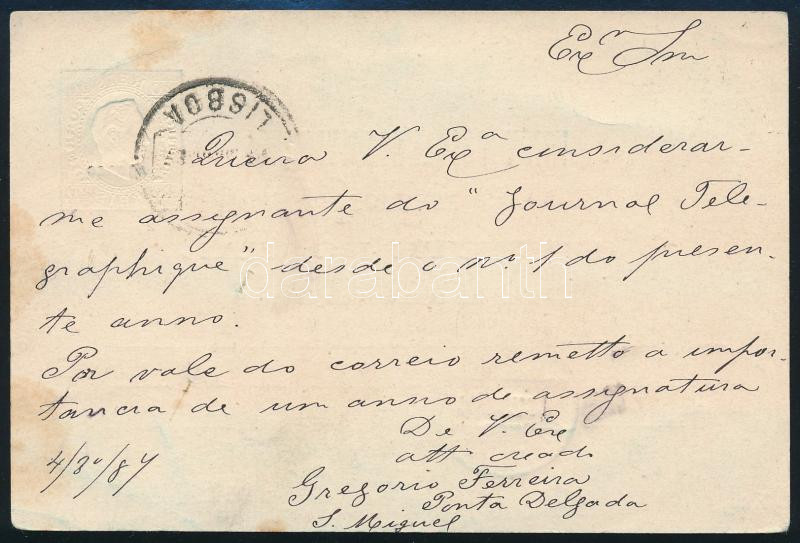 Exm Snr
LISBOA
Queira V. Exa considerar-
me assignante do "Journal Tele-
graphique" desde o nº 1 do presen-
te anno.
Por vale do correio remetto a impor-
tancia de um anno de assignatura
De V. Ex
att creado
4/3º/84
Gregorio Ferreira
Ponta Delgada
S. Miguel
darabanth